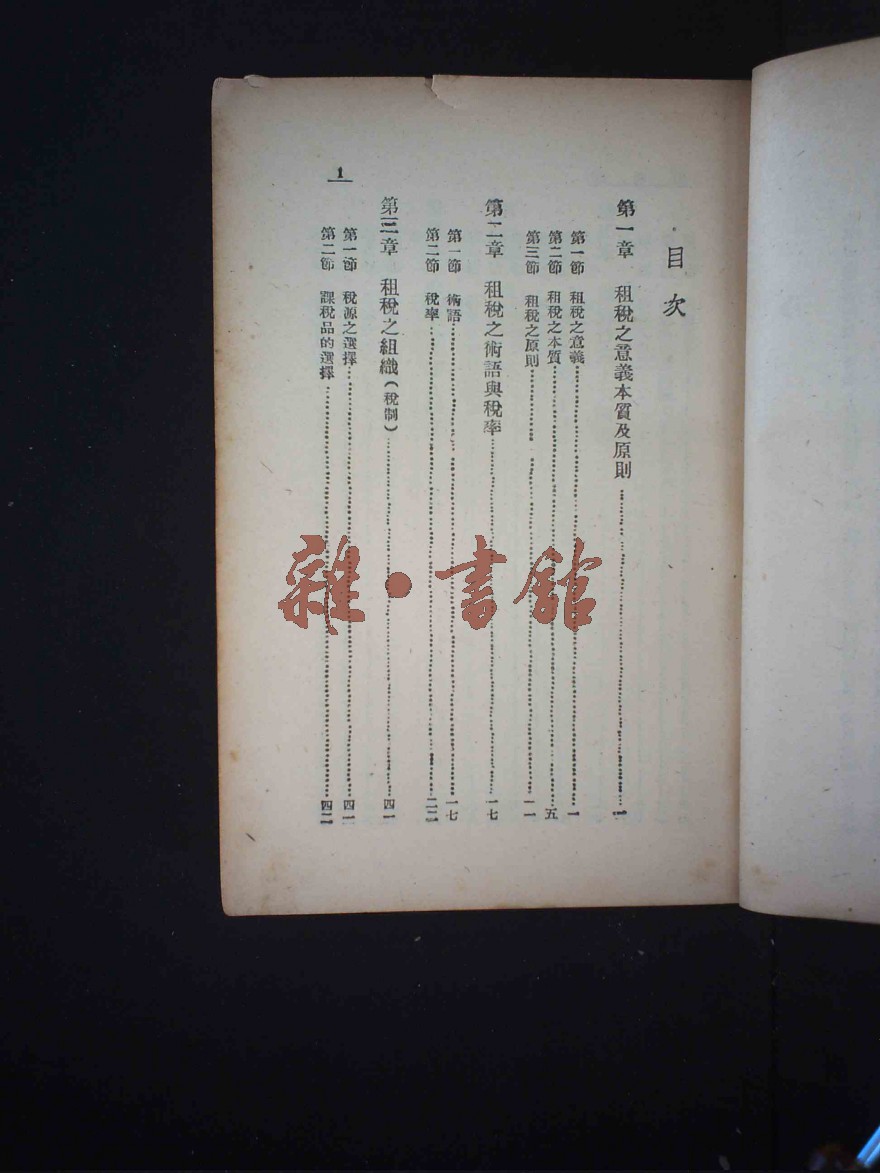 目次
第一章 租稅之意義本質及原則……一
第一節 租稅之意義……一
第二節 租稅之本質……五
第三節 租稅之原則……一一
第二章 租稅之術語與稅率……一七
第一節 術語……一七
第二節 稅率……二二
第三章 租稅之組織(稅制)……四一
第一節 稅源之選擇……四一
第二節 課稅品的選擇……四二
1
雜·書館